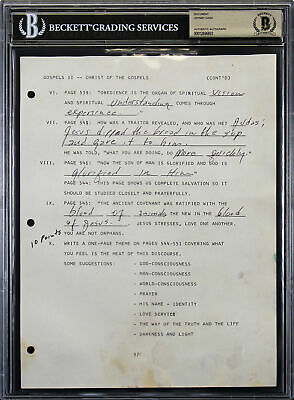 BECKETT GRADING SERVICES
BECKETT
GOSPELS II -- CHRIST OF THE GOSPELS (CONT'D)
VI. PAGE 539: "OBEDIENCE IS THE ORGAN OF SPIRITUAL Vision
AND SPIRITUAL understanding COMES THROUGH
experience
VII. PAGE 541: HOW WAS A TRAITOR REVEALED, AND WHO WAS HE? Judas,
Jesus dipped the bread in the sop
and gave it to him.
HE WAS TOLD, "WHAT YOU ARE DOING, DO More quickly."
VIII. PAGE 543: "NOW THE SON OF MAN IS GLORIFIED AND GOD IS
Glorified in Him."
PAGE 544: THIS PAGE SHOWS US COMPLETE SALVATION SO IT
SHOULD BE STUDIED CLOSELY AND PRAYERFULLY.
IX. PAGE 545: "THE ANCIENT COVENANT WAS RATIFIED WITH THE
blood of animals THE NEW IN THE blood
of Jesus. JESUS STRESSES, LOVE ONE ANOTHER.
YOU ARE NOT ORPHANS.
10 points
X. WRITE A ONE-PAGE THEME ON PAGES 544-551 COVERING WHAT
YOU FEEL IS THE MEAT OF THIS DISCOURSE.
SOME SUGGESTIONS: - GOD-CONSCIOUSNESS
- MAN-CONSCIOUSNESS
- WORLD-CONSCIOUSNESS
- PRAYER
- HIS NAME - IDENTITY
- LOVE SERVICE
- THE WAY OF THE TRUTH AND THE LIFE
- DARKNESS AND LIGHT